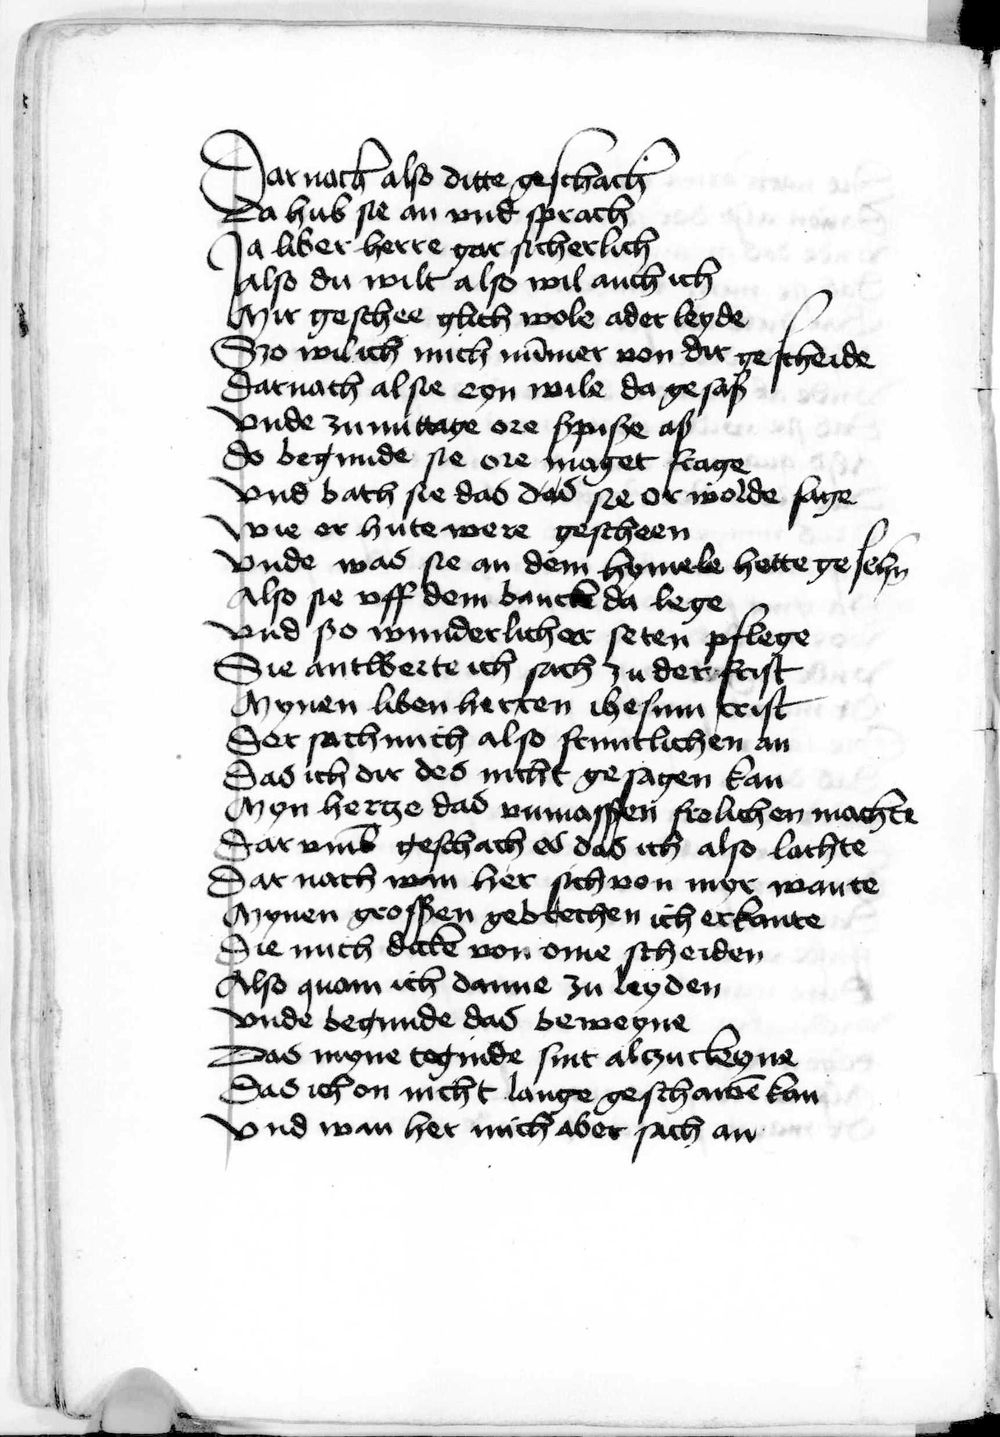 Dar nach also ditte geschach
Da hub sie an vnd sprach
Ja liber herre gar sicherlich
Also du wilt also wil auch ich
Mir geschee glich wole ader leyde
Szo wil ich mich nūmer von dir gescheide
Darnach al sie eyn wile da gesaß
Vnde zu mittage ore spisze aß
Do begunde sie ore maget frage
Vnd bath sie das das sie or wolde sage
Wie or hute were gescheen
Vnde was sie an dem hymele hette gesehn
Also sie vff dem bancke da lege
Vnd szo wunderlicher seten pflege
Sie antwerte ich sach zu der frist
Mynen liben herren ihesum crist
Der sach mich also fruntlichen an
Das ich dir des nicht gesagen kan
Myn hertze das vnmassen frolichen machte
Dar vmb geschach es das ich also lachte
Dar nach wan her sich von myr wante
Mynen grossen gebrechen ich erkante
Die mich dicke von ome scheiden
Also quam ich danne zu leyden
Vnde begunde das beweyne
Das myne toginde sint alczu cleyne
Das ich on nicht lange geschawē kan
Vnd wan her mich aber sach an